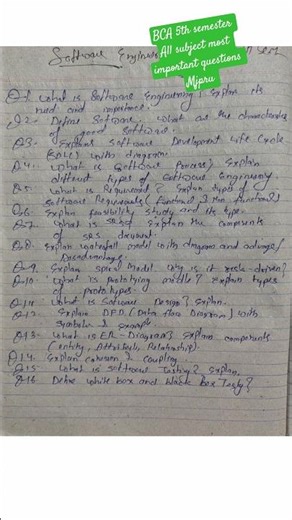 BCA 5th semester
All subject most
important questions
Mjpru
Software Engine
Q-1 What is Software Engineering? Explain its
need and importance.
Q.2- Define Software. What are the characteristics
of good Software.
Q3- Explain Software Development Life Cycle
(SDLC) with diagram.
Q.4- What is Software Process? Explain
different types of Software Engineering.
Q.5- What is Requirement? Explain types of
Software Requirements (functional & Non functional)
Q-6- Explain feasibility study and its types.
Q-7. What is SRS? Explain the components
of SRS document.
Q.8- Explain waterfall model with diagram and
Disadvantage.
Q-9. Explain spiral Model why is it risk-driven?
Q-10. What is prototyping Explain types
of prototypes.
Q.11. What is Software Design? Explain.
Q-12. Explain D.F.D. (Data flow Diagram) with
symbols & example
Q.13- What is E.R-Diagram? Explain components
(entity, Attribute, Relationship).
Q.14. Explain cohesion & Coupling
Q.15 What is software Testing? Explain.
Q.16 Define white box and black box Testing?